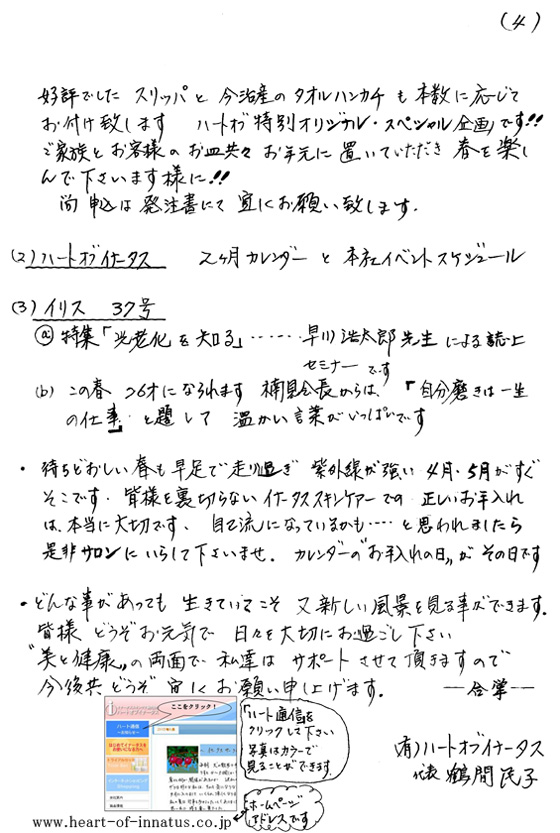 (4)
好評でした スリッパと 今治産の タオルハンカチ も 本数に応じて
お付け致します ハートオブ特別オリジナル・スペシャル企画です!!
ご家族と お客様の お皿共々 お手元に 置いていただき 春を楽し
んで下さいます様に!!
尚 申込は 発注書にて 宜しくお願い致します.
(2) ハートオブイナータス 2ヶ月カレンダー と 本社イベントスケジュール
(3) イリス 37号
ⓐ 特集「光老化を知る」…… 早川浩太郎先生 による誌上
セミナーです
(b) この春 96才になられます 楠見会長からは、「自分磨きは一生
の仕事」と題して 温かい言葉がいっぱいです
・待ちどおしい春も早足で走り過ぎ 紫外線が強い 4月・5月がすぐ
そこです. 皆様を裏切らない イナータススキンケアーでの 正しいお手入れ
は、本当に大切です、自己流になっているかも…… と思われましたら
是非サロンにいらして下さいませ. カレンダーの〝お手入れの日〟が その日です
・どんな事があっても 生きていてこそ 又新しい風景を見る事ができます.
皆様 どうぞお元気で 日々を大切にお過ごし下さい
〝美と健康〟の両面で 私達は サポート させて頂きますので
今後共どうぞ 宜しくお願い申し上げます. ―合掌―
ここをクリック!
ハート通信
「ハート通信」を
クリックして下さい
写真はカラーで
見ることができます.
(有)ハートオブイナータス
代表 鶴間民子
ホームページ
アドレスです
www.heart-of-innatus.co.jp